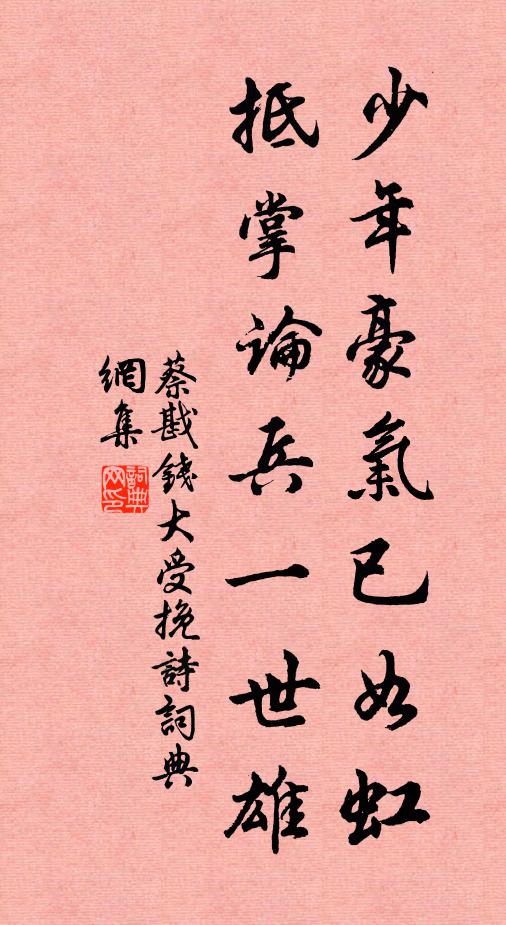 少年豪氣已如虹
抵掌論兵一世雄
蔡戡錢大受挽詩詞典
網集
詞典
网印